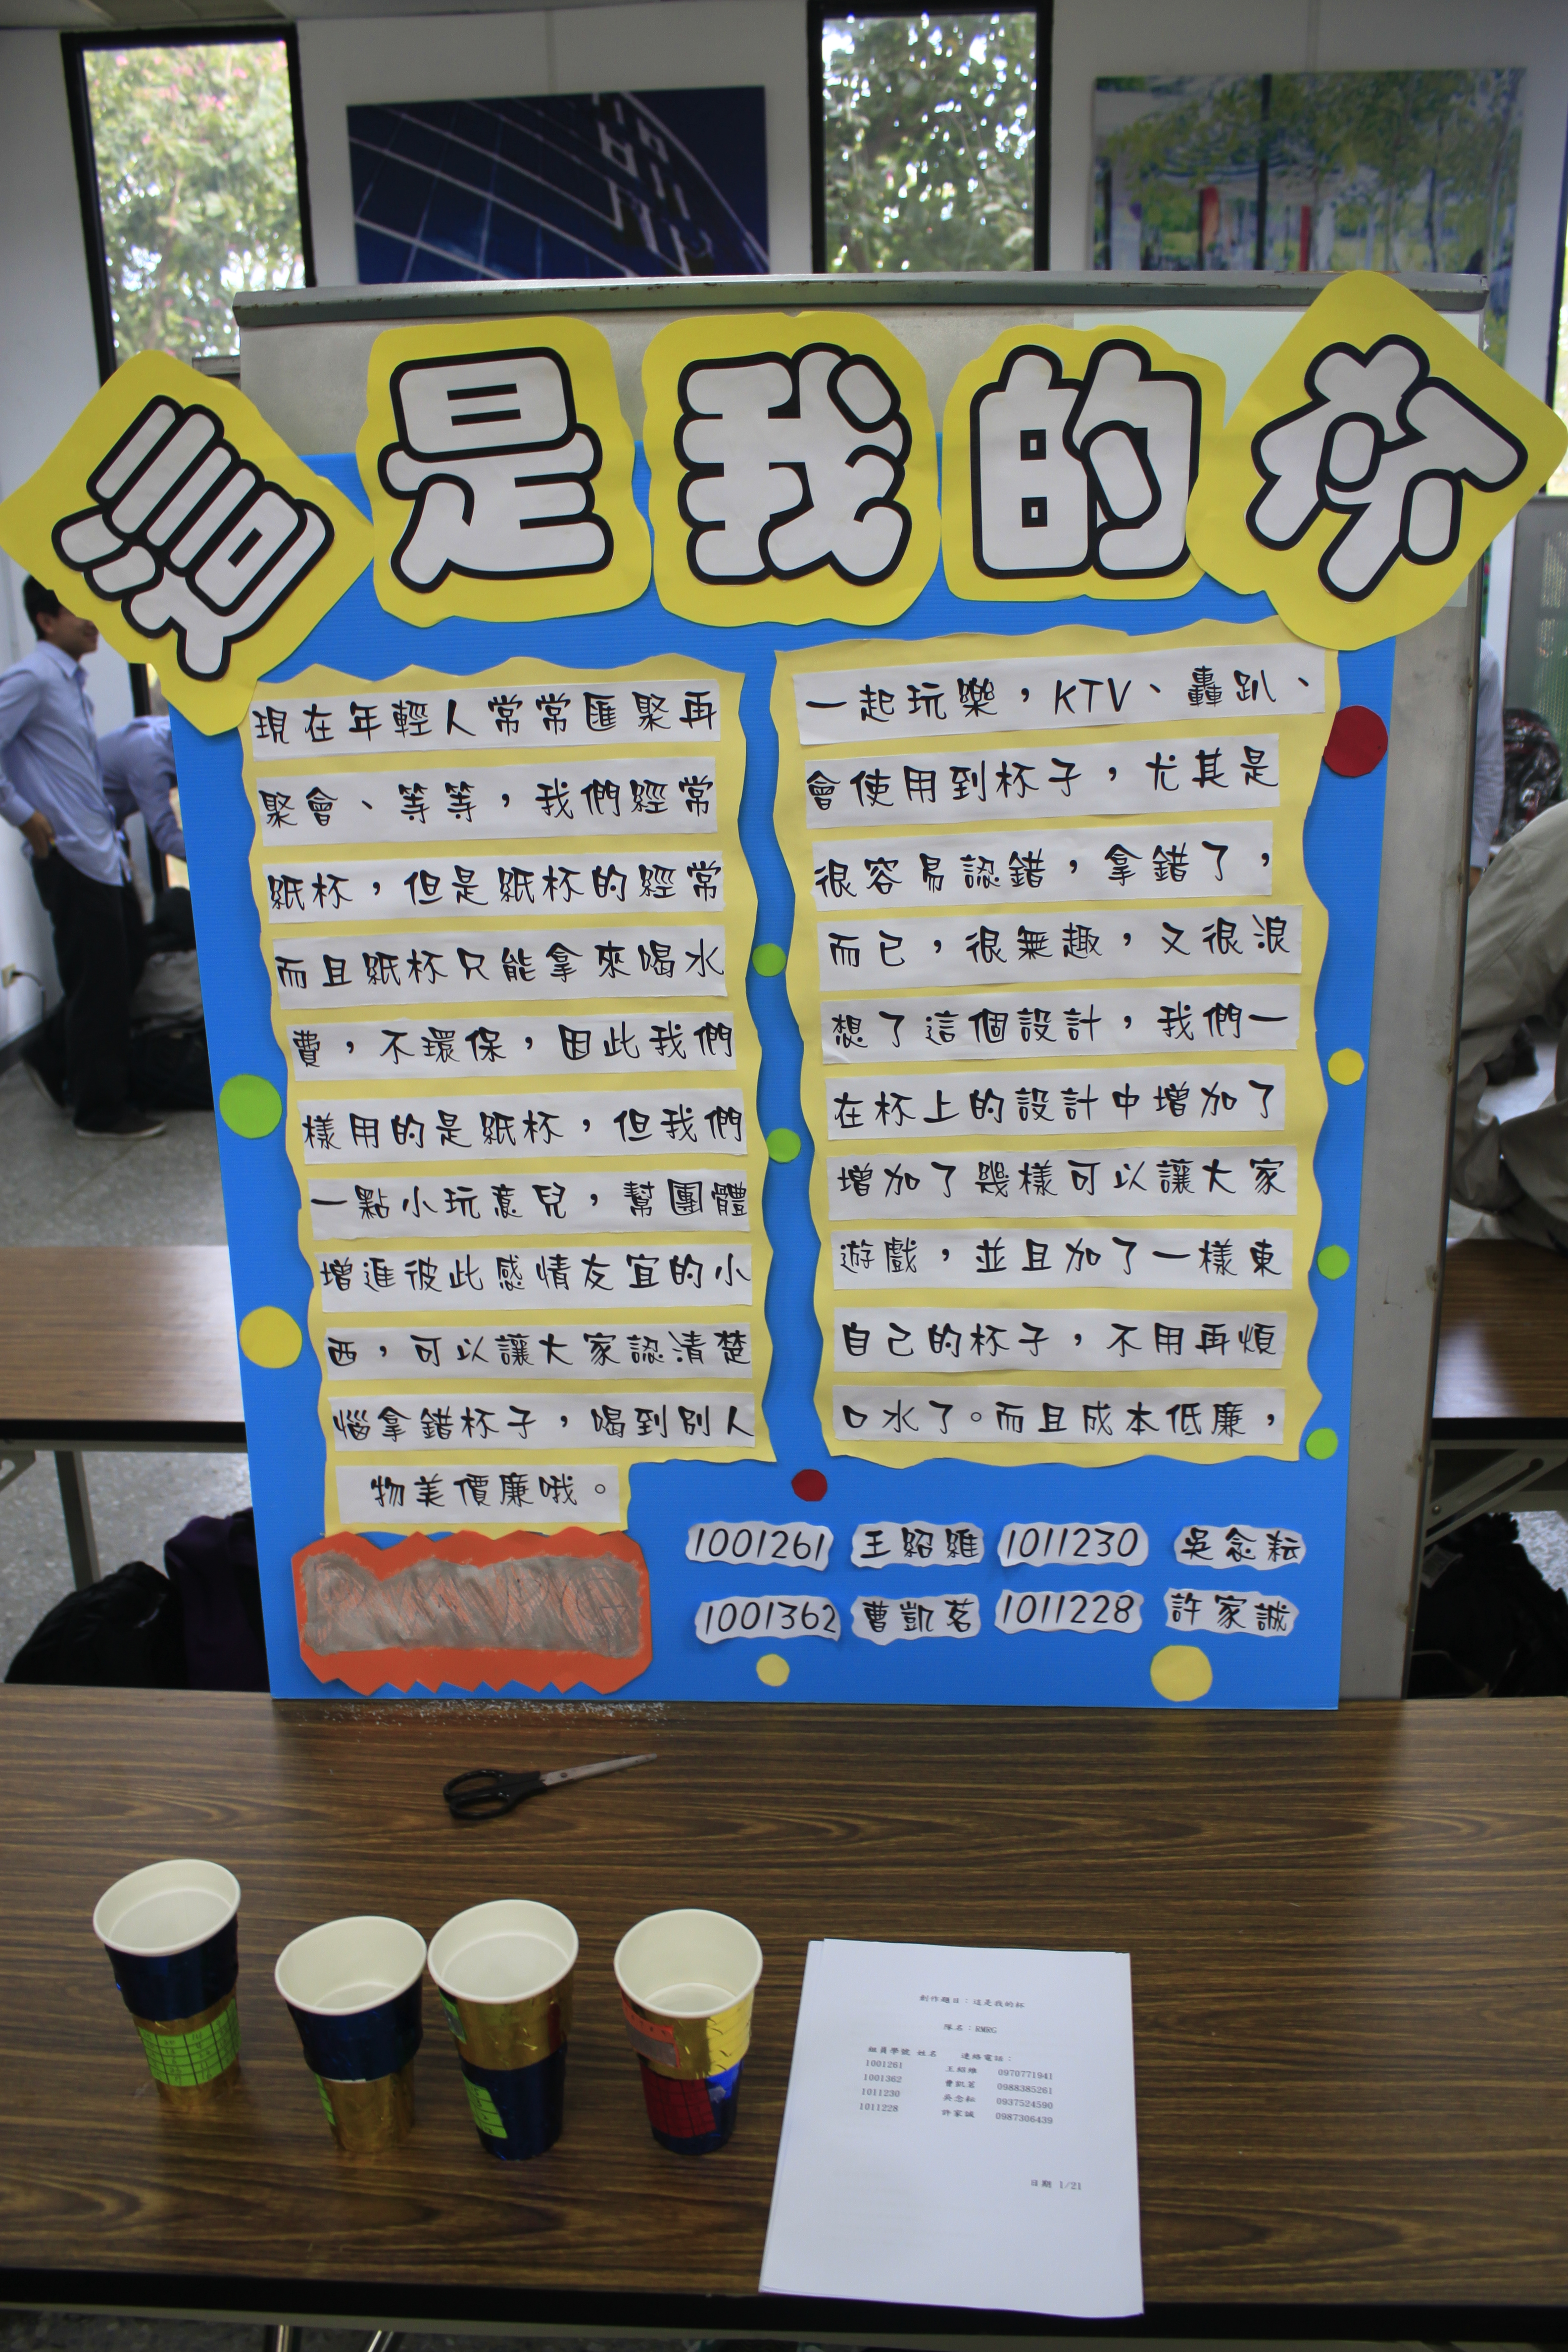 這是我的杯
現在年輕人常常匯聚再
一起玩樂，KTV、轟趴、
聚會、等等，我們經常
會使用到杯子，尤其是
紙杯，但是紙杯的經常
很容易認錯，拿錯了，
而且紙杯只能拿來喝水
而已，很無趣，又很浪
費，不環保，因此我們
想了這個設計，我們一
樣用的是紙杯，但我們
在杯上的設計中增加了
一點小玩意兒，幫團體
增加了幾樣可以讓大家
增進彼此感情友宜的小
遊戲，並且加了一樣東
西，可以讓大家認清楚
自己的杯子，不用再煩
惱拿錯杯子，喝到別人
口水了。而且成本低廉，
物美價廉哦。
1001261 王紹維 1011230 吳念耘
1001362 曹凱茗 1011228 許家誠
創作題目：這是我的杯
隊名：RMRG
組員學號 姓名 連絡電話：
1001261 王紹維 0970771941
1001362 曹凱茗 0988385261
1011230 吳念耘 0937524590
1011228 許家誠 0987306439
日期 1/21